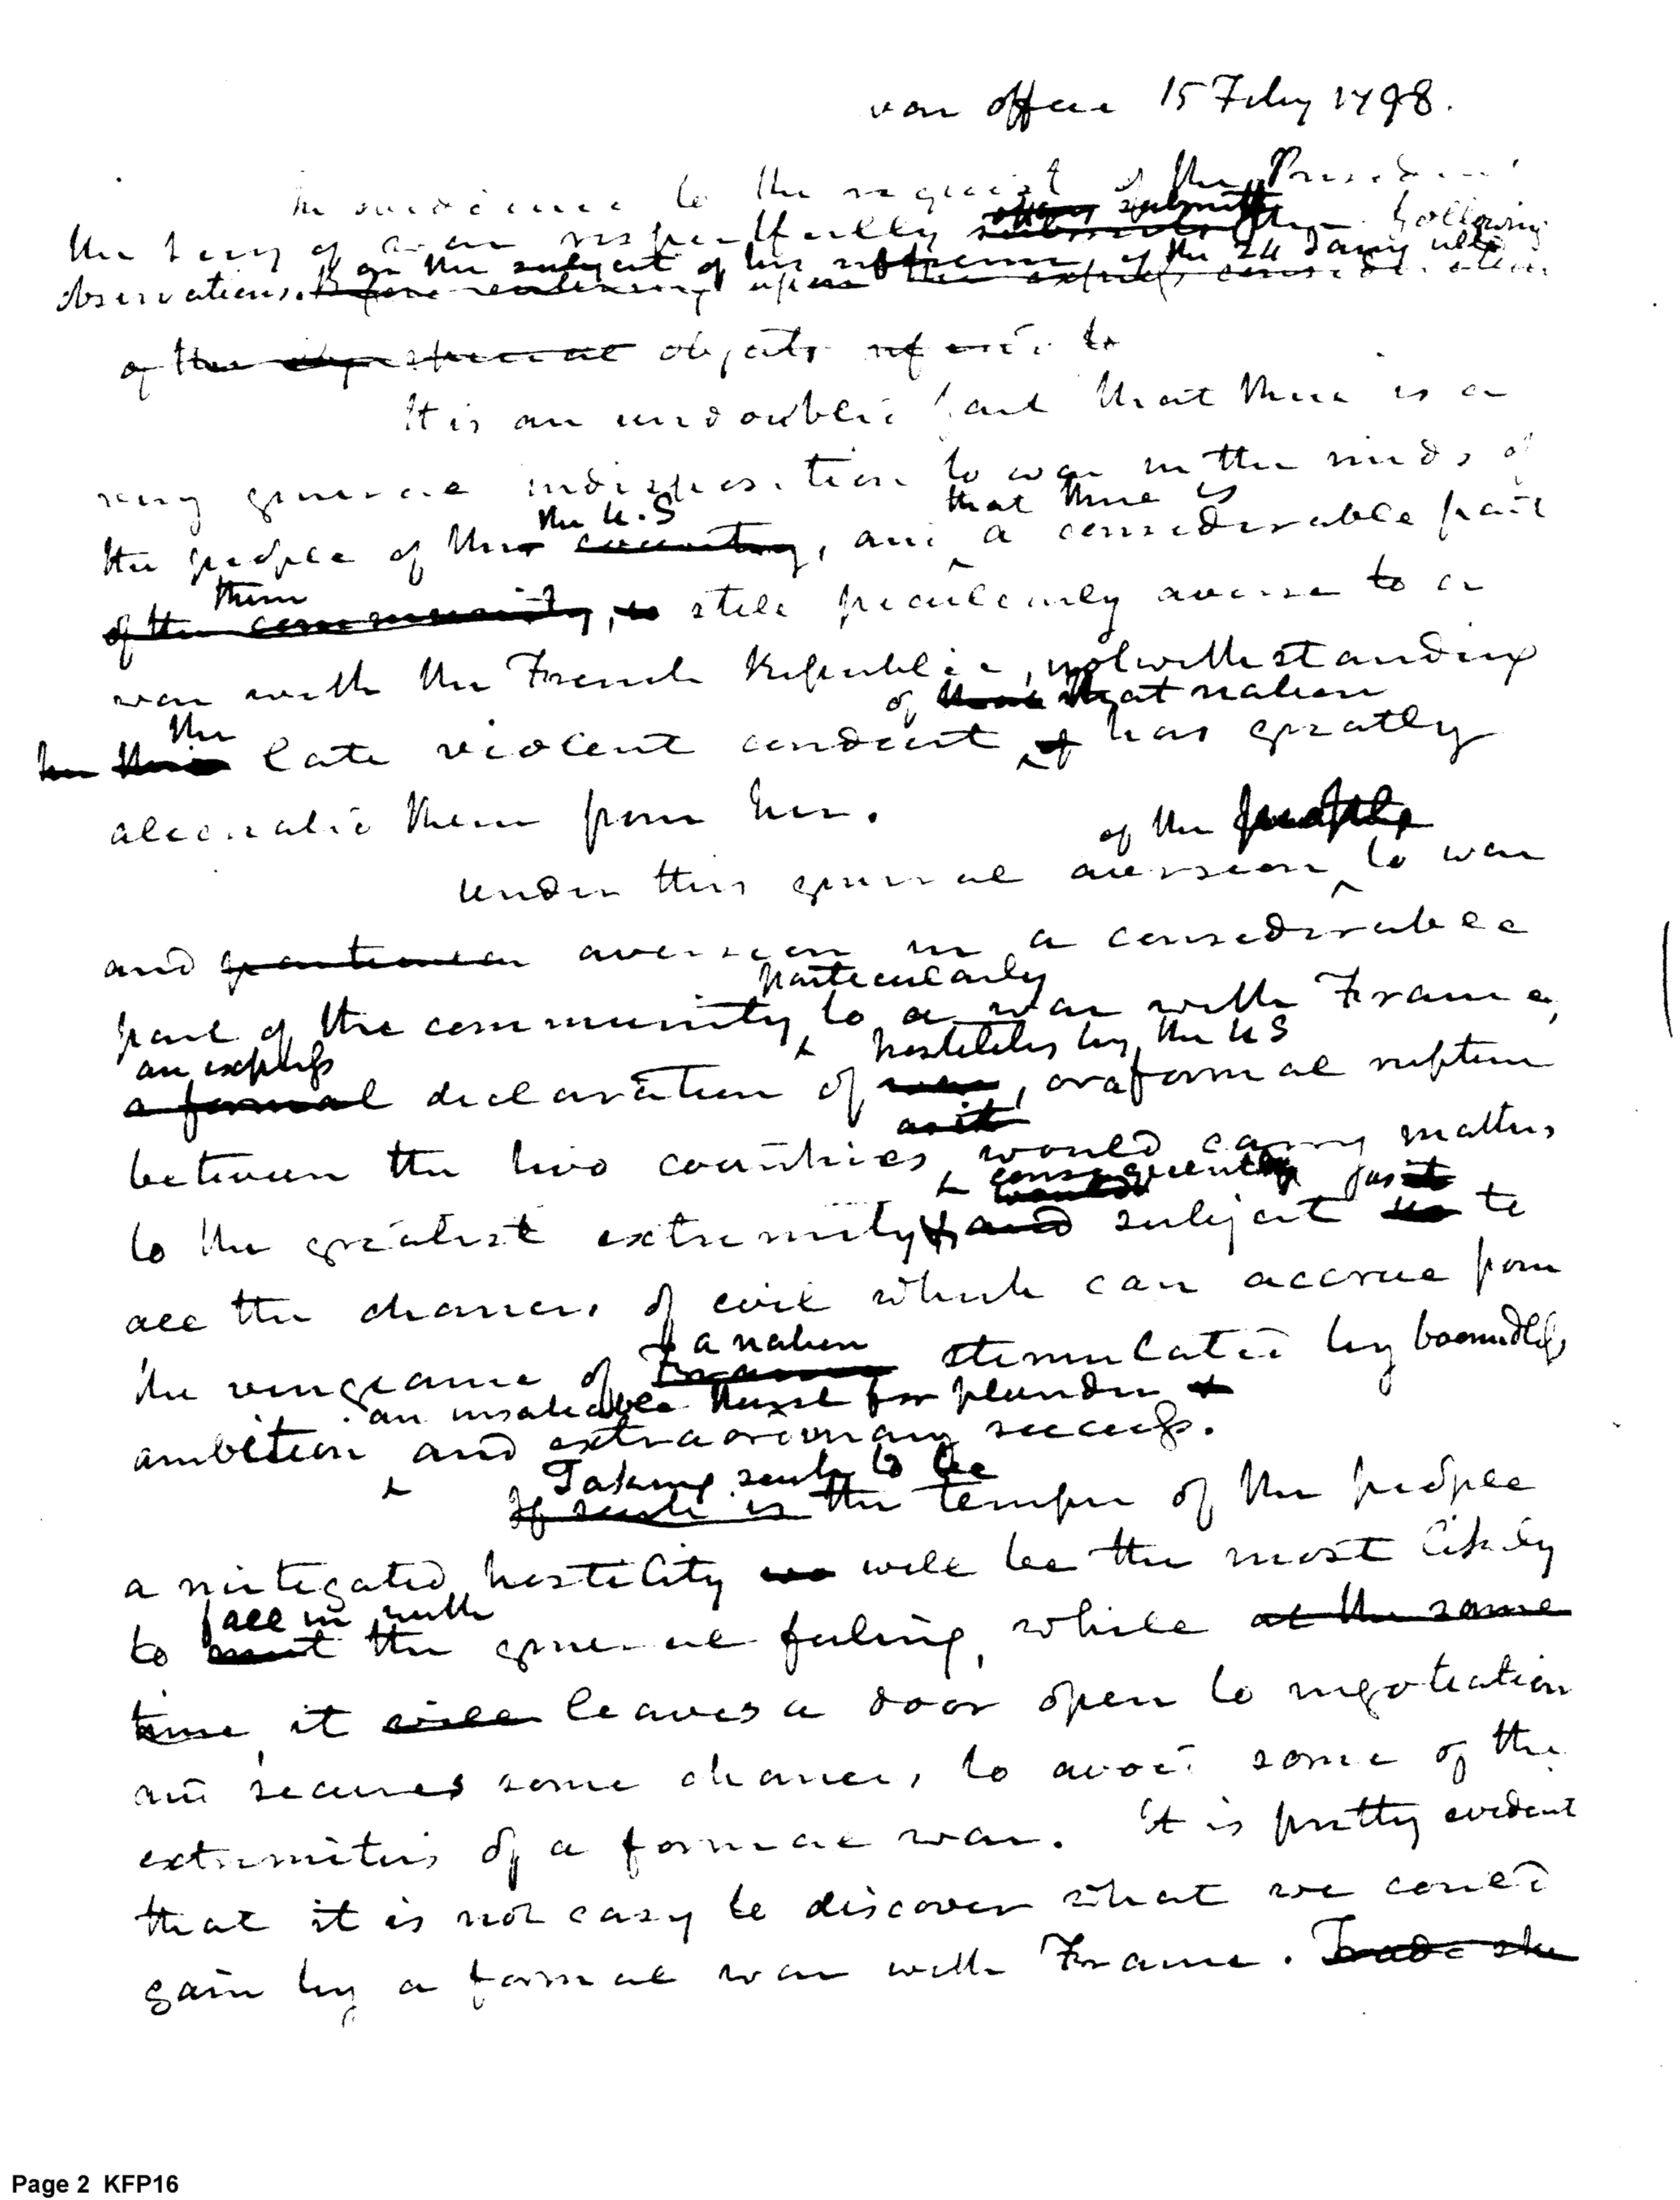 war office 15 Feby 1798.
In obedience to the request of the President
the Secy of war respectfully submits the following
offers submits
on the subject of his reference of the 24 Jany ulto
observations. Before entering upon the express consideration
of the objects referred to
It is an undoubted fact that there is a
very general indisposition to war in the minds of
the U.S that there is
the people of this country, and a considerable part
them
of the community, is still peculiarly averse to a
war with the French Republic, notwithstanding
of that nation
the
her late violent conduct has greatly
alienated them from her.
of the people
Under this general aversion to war
and particular aversion in a considerable
particularly
part of the community to a war with France,
an express hostilities by the US
a formal declaration of war, or a formal rupture
as it
between the two countries, would carry matters
consequently us
to the greatest extremity, and subject us to
all the chances of evil which can accrue from
a nation
the vengeance of France stimulated by boundless
an insatiable thirst for plunder &
ambition and extraordinary success.
Taking such to be
If such is the temper of the people
a mitigated hostility will be the most likely
fall in with
to meet the general feeling, while at the same
time, it will leaves a door open to negotiation
and secures some chances to avoid some of the
extremities of a formal war. It is pretty evident
that it is not easy to discover what we could
gain by a formal war with France. Trade she
Page 2 KFP16